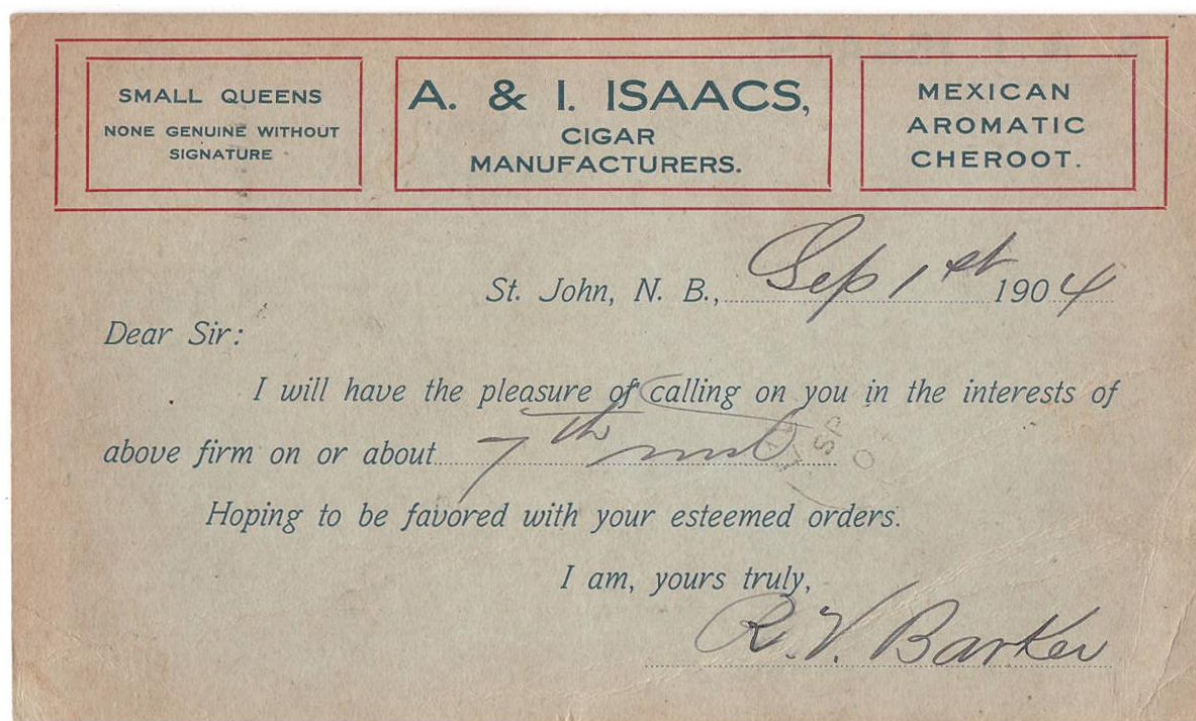 SMALL QUEENS
NONE GENUINE WITHOUT
SIGNATURE
A. & I. ISAACS,
CIGAR
MANUFACTURERS.
MEXICAN
AROMATIC
CHEROOT.
St. John, N. B., Sep 1st 1904
Dear Sir:
I will have the pleasure of calling on you in the interests of
above firm on or about 7th
Hoping to be favored with your esteemed orders.
I am, yours truly,
R. V. Barker